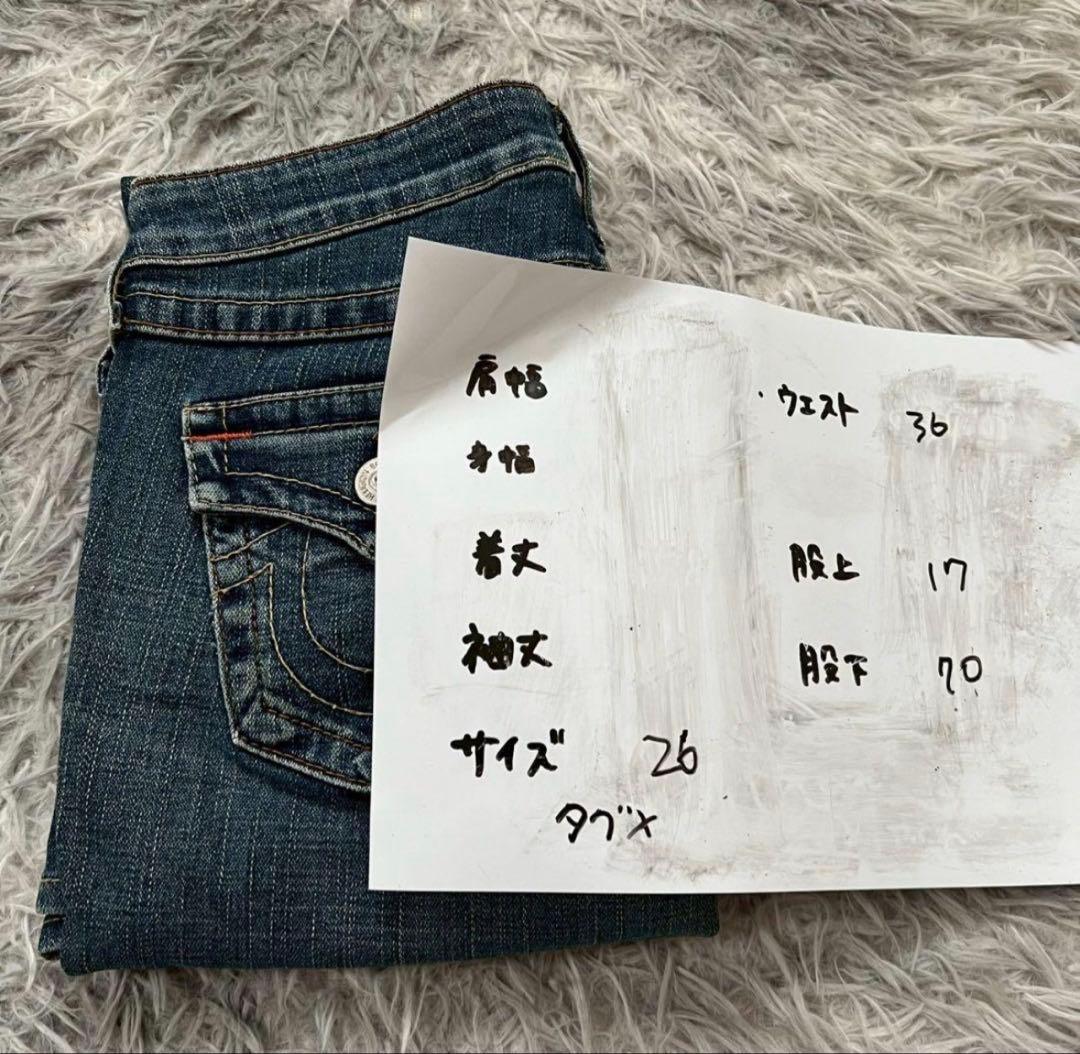 肩幅
身幅
着丈
袖丈
サイズ 26
タグ×
・ウエスト 36
股上 17
股下 70